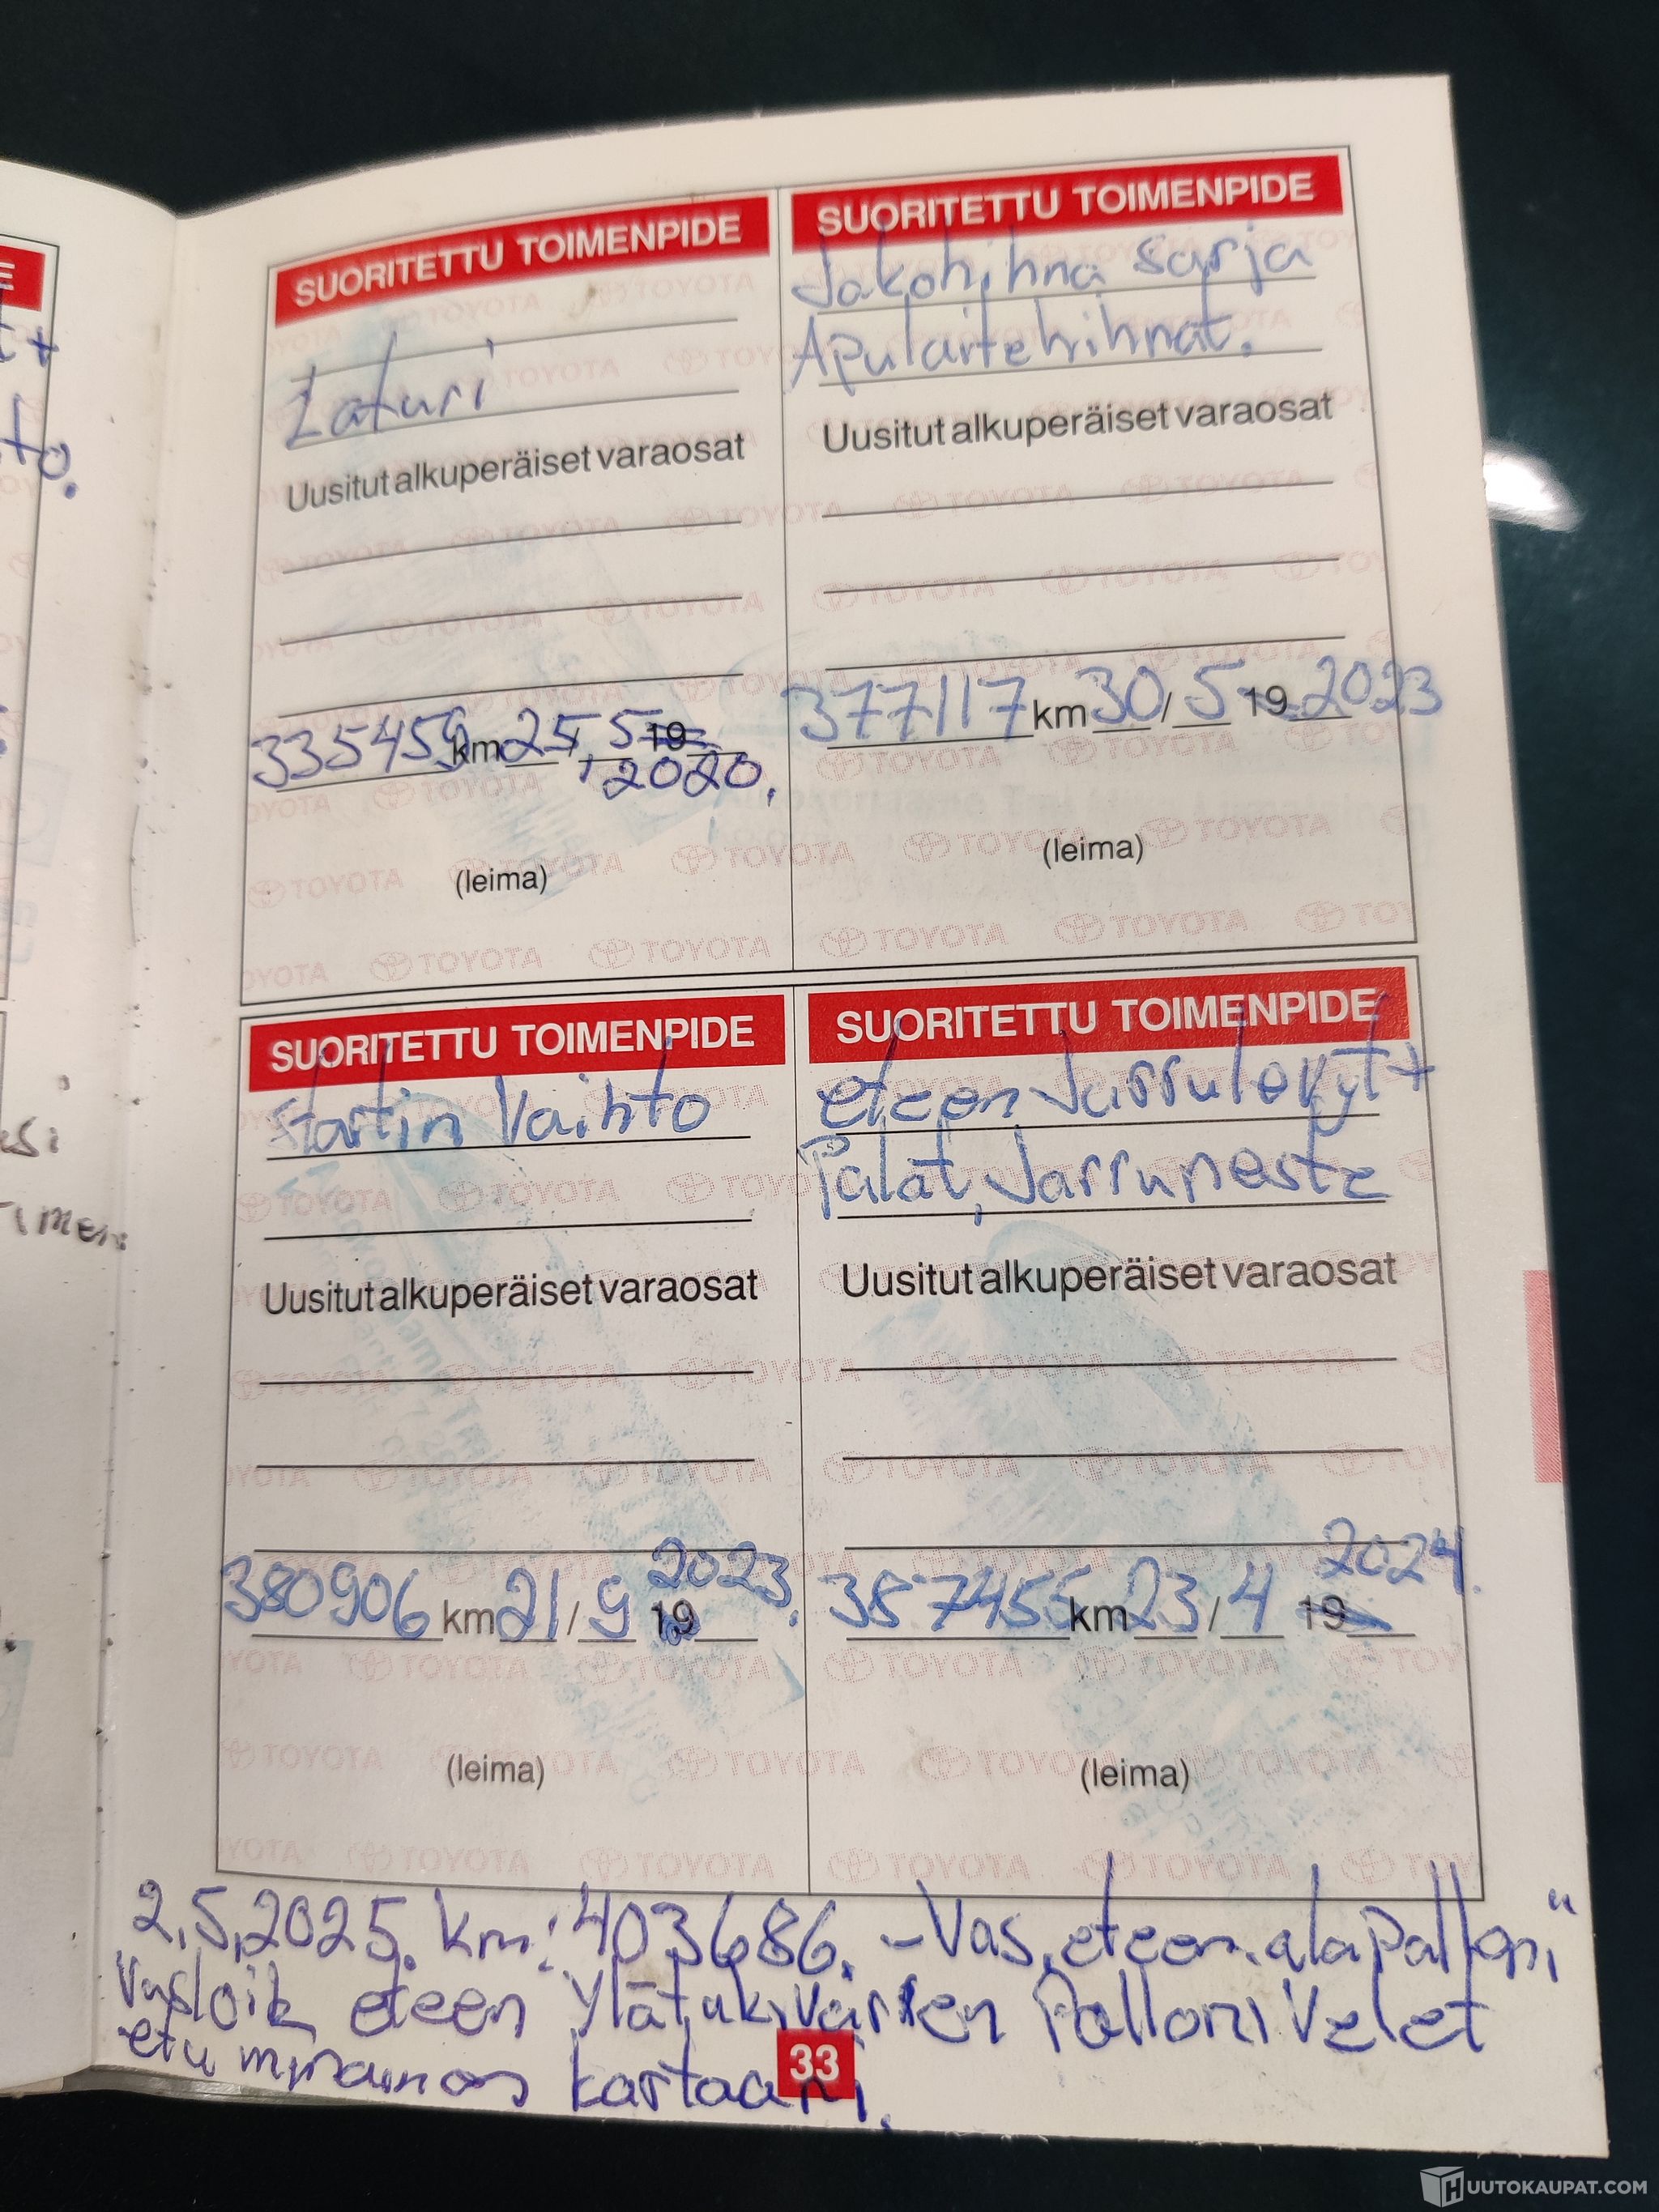 E
t+
to.
ksi
imen.
SUORITETTU TOIMENPIDE
Laturi
Uusitut alkuperäiset varaosat
335459 km 25/5 19
2020.
(leima)
SUORITETTU TOIMENPIDE
Jakohihna sarja
Apulaitehihnat.
Uusitut alkuperäiset varaosat
377117 km 30/5 19 2023
(leima)
SUORITETTU TOIMENPIDE
Startin Vaihto
Uusitut alkuperäiset varaosat
380906 km 21/9 19 2023.
(leima)
SUORITETTU TOIMENPIDE
eteen Jarrulevyt +
Palat, Jarruneste
Uusitut alkuperäiset varaosat
387455 km 23/4 19 2024.
(leima)
2,5,2025. km: 403686. - Vas. eteen. alapalloni
eteen ylätukivarren Pallonivelet
kartaani.
33
TOYOTA
HUUTOKAUPAT.COM